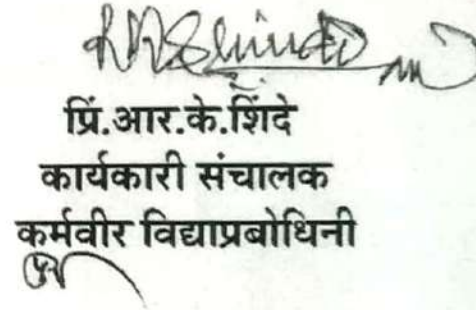 प्रिं.आर.के.शिंदे
कार्यकारी संचालक
कर्मवीर विद्याप्रबोधिनी